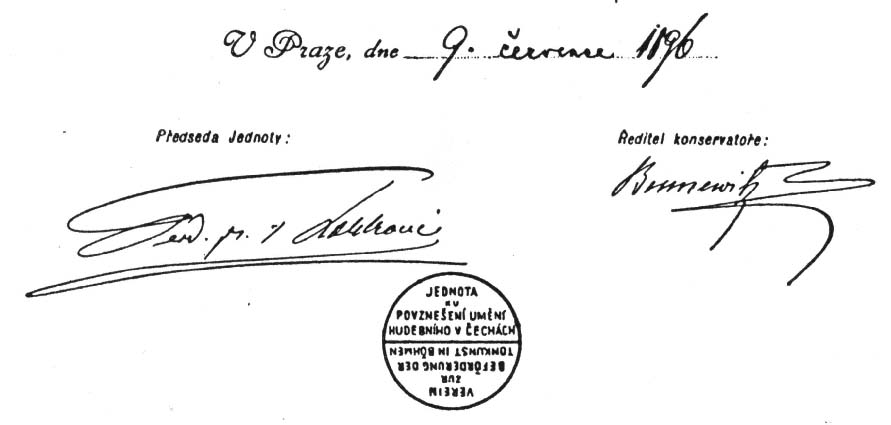 V Praze, dne 9. července 1896
Předseda Jednoty:
Ředitel konservatoře:
Ferd. 
Bennewitz
JEDNOTA
KU
POVZNEŠENÍ UMĚNÍ
HUDEBNÍHO V ČECHÁCH
VEREIN
ZUR
BEFÖRDERUNG DER
TONKUNST IN BÖHMEN